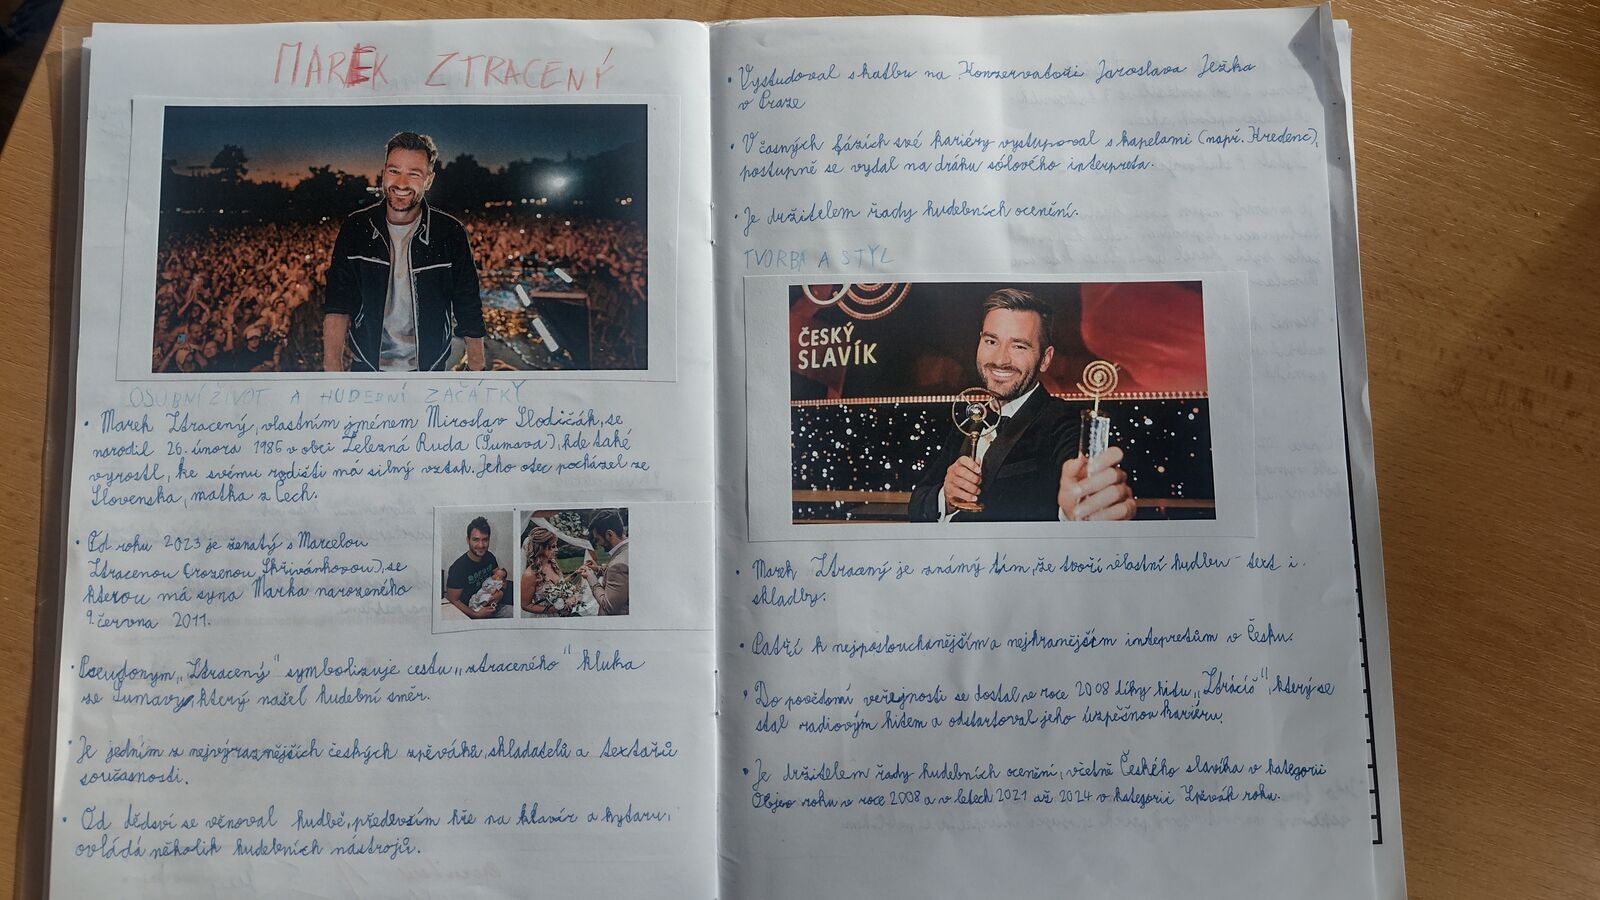 MAREK ZTRACENÝ
OSOBNÍ ŽIVOT A HUDEBNÍ ZAČÁTKY
• Marek Ztracený, vlastním jménem Miroslav Slodičák, se
narodil 26. února 1985 v obci Železná Ruda (Šumava), kde také
vyrostl, ke svému rodišti má silný vztah. Jeho otec pocházel ze
Slovenska, matka z Čech.
• Od roku 2023 je ženatý s Marcelou
Ztracenou (rozenou Skřivánkovou), se
kterou má syna Marka narozeného
9. června 2011.
• Pseudonym „Ztracený" symbolizuje cestu „ztraceného" kluka
ze Šumavy, který našel hudební směr.
• Je jedním z nejvýraznějších českých zpěváků, skladatelů a textařů
současnosti.
• Od dědsví se věnoval hudbě, především hře na klavár a kytaru,
ovládá několik hudebních nástrojů.
• Vystudoval skatbu na Konzervatoři Jaroslava Ježka
v Praze
• V časných fázích své kariéry vystupoval s kapelami (např. Kredenc),
postupně se vydal na dráhu sólového interpreta.
• Je držitelem řady hudebních ocenění.
TVORBA A STYL
ČESKÝ
SLAVÍK
• Marek Ztracený je známý tím, že tvoří vlastní hudbu - text i
skladby.
• Patří k nejposlouchanějším a nejhranějším intepretům v Česku.
• Do povědomí veřejnosti se dostal v roce 2008 díky hitu „Ztrácíš", který se
stal radiovým hitem a odstartoval jeho úzpěšnou kariéru.
• Je držitelem řady hudebních ocenění, včetně Českého slavíka v kategorii
Objev roku v roce 2008 a v letech 2021 až 2024 v kategorii Zpěvák roku.